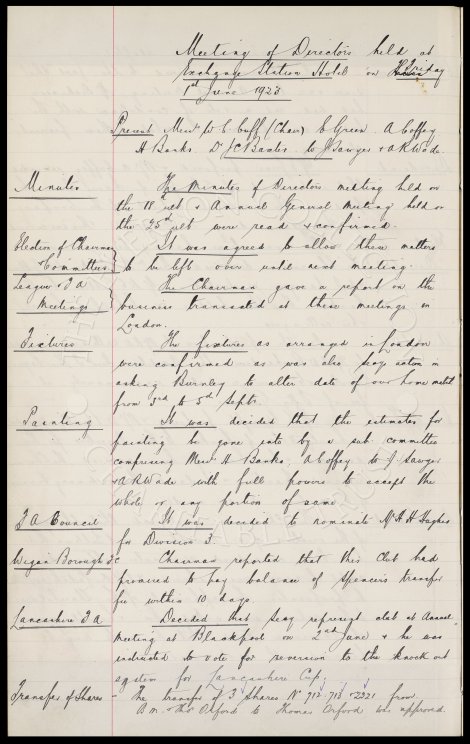 Meeting of Directors held at
Exchange Station Hotel on Friday
1st June 1923
Present Messrs W C Cuff (Chair) E Green. A Coffey
H Banks. Dr J C Baxter. W J Sawyer & A R Wade.
Minutes
The Minutes of Directors meeting held on
the 18th ult & Annual General Meeting held on
the 25th ult were read & confirmed.
Election of Chairman
& Committees
It was agreed to allow these matters
to be left over until next meeting.
League & F A
Meetings
The Chairman gave a report on the
business transacted at these meetings in
London.
Fixtures
The fixtures as arranged in London
were confirmed as was also Secy action in
asking Burnley to alter date of our home match
from 3rd to 5th Septr.
Painting
It was decided that the estimates for
painting be gone into by a sub committee
comprising Messrs H Banks, A Coffey W J Sawyer
& A R Wade with full powers to accept the
whole or any portion of same.
F A Council
It was decided to nominate Mr H H Hughes
for Division 3
Wigan Borough F C
Chairman reported that this club had
promised to pay balance of Spencers transfer
fee within 10 days.
Lancashire F A
Decided that Secy represent club at Annual
Meeting at Blackpool on 2nd June & he was
instructed to vote for reversion to the knock out
system for Lancashire Cup.
Transfer of Shares -
The transfer of 3 Shares No 712 713 & 2321 from
B M & Thos Orford to Thomas Orford was approved.